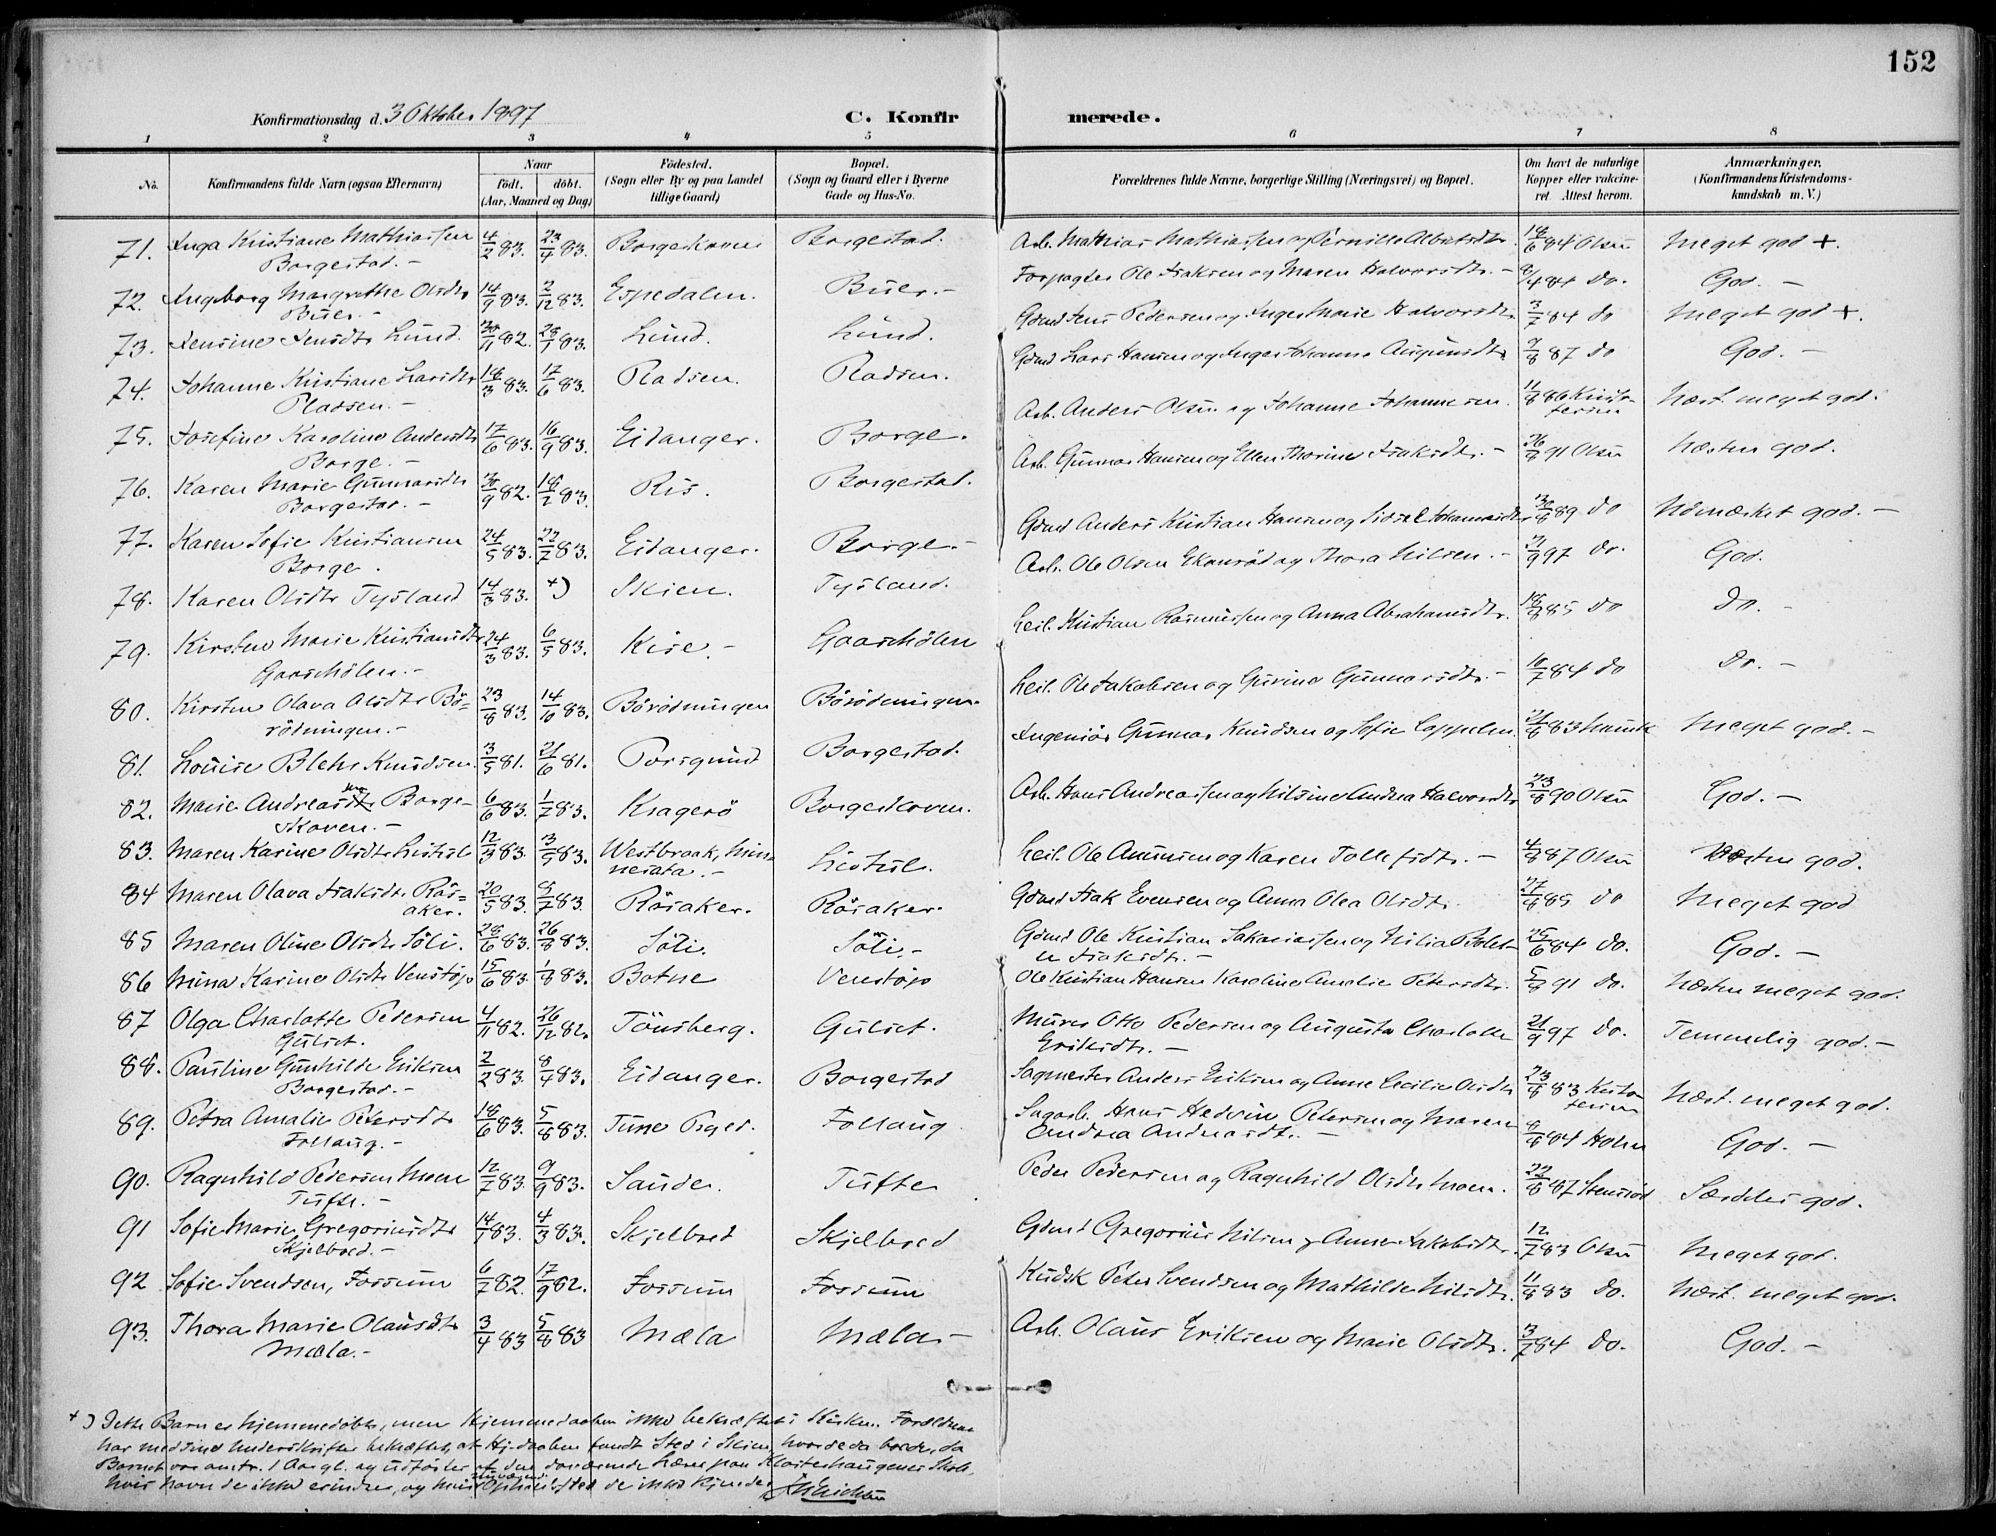 152
Konfirmationsdag d. 3 Oktober 1897
C. Konfir merede.
1 2 3 4 5 6 7 8
No.
Konfirmandens fulde Navn (ogsaa Efternavn)
Naar
födt. döbt.
(Aar, Maaned og Dag)
Födested.
(Sogn eller By og paa Landet
tillige Gaard)
Bopæl.
(Sogn og Gaard eller i Byerne
Gade og Hus-No.
Forældrenes fulde Navne, borgerlige Stilling (Næringsvei) og Bopæl.
Om havt de naturlige
Kopper eller vakcine-
ret. Attest herom.
Anmærkninger.
(Konfirmandens Kristendoms-
kundskab m. V.)
71. Inga Kristiane Mathiassen 4/2 83. 23/4 83. Borgeskoven Borgestad. Arb. Mathias Mathiassen og Pernille Albretsdtr. 18/6 84 Olsen Meget god +.
Borgestad. -
72. Ingeborg Margrethe Olsdtr 14/9 83. 2/12 83. Espedalen. Buer. - Forpagter Ole Isaksen og Maren Halvorsdtr. - 8/4 84 do. God. -
Buer. -
73. Jensine Jensdtr Lund. 20/11 82. 28/1 83. Lund. Lund. Gdmd Jens Pedersen og Inger Marie Halvorsdtr 3/7 84 do Meget god +.
74. Johanne Kristiane Larsdtr 18/3 83. 17/6 83. Pladsen. Pladsen. Gdmd Lars Hansen og Inger Johanne 9/8 87 do God. -
Pladsen. -
75. Josefine Karoline Andersdtr 17/6 83. 16/9 83. Eidanger. Borge. Arb. Anders Olsen og Johanne Johannesen. 11/8 86 Kristo-
fersen Næst. meget god.
Borge. -
76. Karen Marie Gunnarsdtr 30/9 82. 18/2 83. Ris. Borgestad. Arb. Gunnar Hansen og Ellen Thorine Isaksdtr. - 26/8 91 Olsen Næsten god.
Borgestad. -
77. Karen Sofie Kristiansen 24/5 83. 22/7 83. Eidanger. Borge. - Gdmd Anders Kristian Hansen og Sidsel Johannesdtr 30/8 89 do Udmærket god. -
Borge.
78. Karen Olsdtr Tysland 14/3 83. +) Skien. Tysland. Arb. Ole Olsen og Thora Nilsen. - 21/9 97 do. God.
79. Kirsten Marie Kristiansdtr 24/3 83. 6/5 83. Kise. - Gaasehölen Leil. Kristian Rasmussen og Anna Abrahamsdtr. 18/9 85 do Do. -
Gaasehölen. -
80. Kirsten Olava Olsdtr Bö- 23/8 83. 14/10 83. Börödningen Börödningen. Leil. Ole Jakobsen og Gurine Gunnarsdtr. - 10/7 84 do Do. -
rödningen. -
81. Louise Blehr Knudsen. 3/5 81. 21/6 81. Porsgrund Borgestad. Ingeniör Gunnar Knudsen og Sofie Cappelen 21/8 83 Meget god. -
82. Marie Andreassen Borge- 6/6 83. 1/7 83. Kragerö Borgeskoven. Arb. Hans Andreassen og Nilsine Andrea Halvorsdtr 23/8 90 Olsen God. -
skoven. -
83. Maren Karine Olsdtr Lishul 12/3 83. 13/5 83. Westbrook, Minne-
nesota. - Lishul. Leil. Ole Amundsen og Karen Tollefsdtr. - 4/8 87 Olsen Næsten god.
84 Maren Olava Isaksdtr Rös- 20/5 83. 8/7 83. Rösaker. Rösaker. Gdmd Isak Evensen og Anna Olea Olsdtr. 27/8 85 do Meget god
aker.
85 Maren Oline Olsdtr Söli. 28/6 83. 26/8 83. Söli. Söli. - Gdmd Ole Kristian Sakariassen og 25/6 84 do. God. -
Isaksdtr. -
86 Mina Karine Olsdtr Venstöp 15/6 83. 1/8 83. Botne Venstöp Ole Kristian Hansen Karoline Amalie Petersdtr. 5/8 91 do. Næsten meget god.
87 Olga Charlotte Pedersen 4/11 82. 26/12 82. Tönsberg. Gulset. Murer Otto Pedersen og Augusta Charlotte 21/9 97 do. Temmelig god. -
Gulset. Eriksdtr. -
88. Pauline Gunhilde Eriksen 2/2 83. 8/4 83. Eidanger. Borgestad Sagmester Anders Eriksen og Anne Cecilie Olsdtr 23/8 83 Kristo-
fersen Næst. meget god.
Borgestad. -
89. Petra Amalie Petersdtr 18/6 83. 5/8 83. Tune Prgd. Follaug Sagarb. Hans Hedvin Petersen og Maren 8/8 84 Holm God. -
Follaug. - Andrea Andreasdtr. -
90. Ragnhild Pedersen Moen 12/7 83. 9/9 83. Saude. Tufte Peder Pedersen og Ragnhild Olsdtr Moen. 22/8 87 Særdeles god.
Tufte. -
91 Sofie Marie Gregoriusdtr 14/1 83. 4/3 83. Skjelbred Skjelbred Gdmd Gregorius Nilsen og Anne Jakobsdtr. 12/7 83 Olsen Meget god.
Skjelbred. -
92 Sofie Svendsen, Fossum 6/7 82. 17/9 82. Fossum Fossum Kudsk Peter Svendsen og Mathilde Nilsdtr. 11/8 83 do. Næst. meget god.
93. Thora Marie Olausdtr 3/4 83 5/8 83 Mæla Mæla - Arb. Olaus Eriksen og Marie Olsdtr. 3/7 84 do. God. -
Mæla. -
+) Dette Barn er hjemmedöbt, men Hjemmedaaben ikke bekræftet i Kirken. Forældrene
har med sine Underskrifter bekræftet, at Hj.daaben fandt Sted i Skien, hvor de da boede, da
Barnet var omtr. 1 Aar gl. og udförtes af den daværende Lærer paa Klosterhaugens Skole,
hvis Navn de ikke erindrer, og hvis nuværende Opholdssted de ikke kjender.